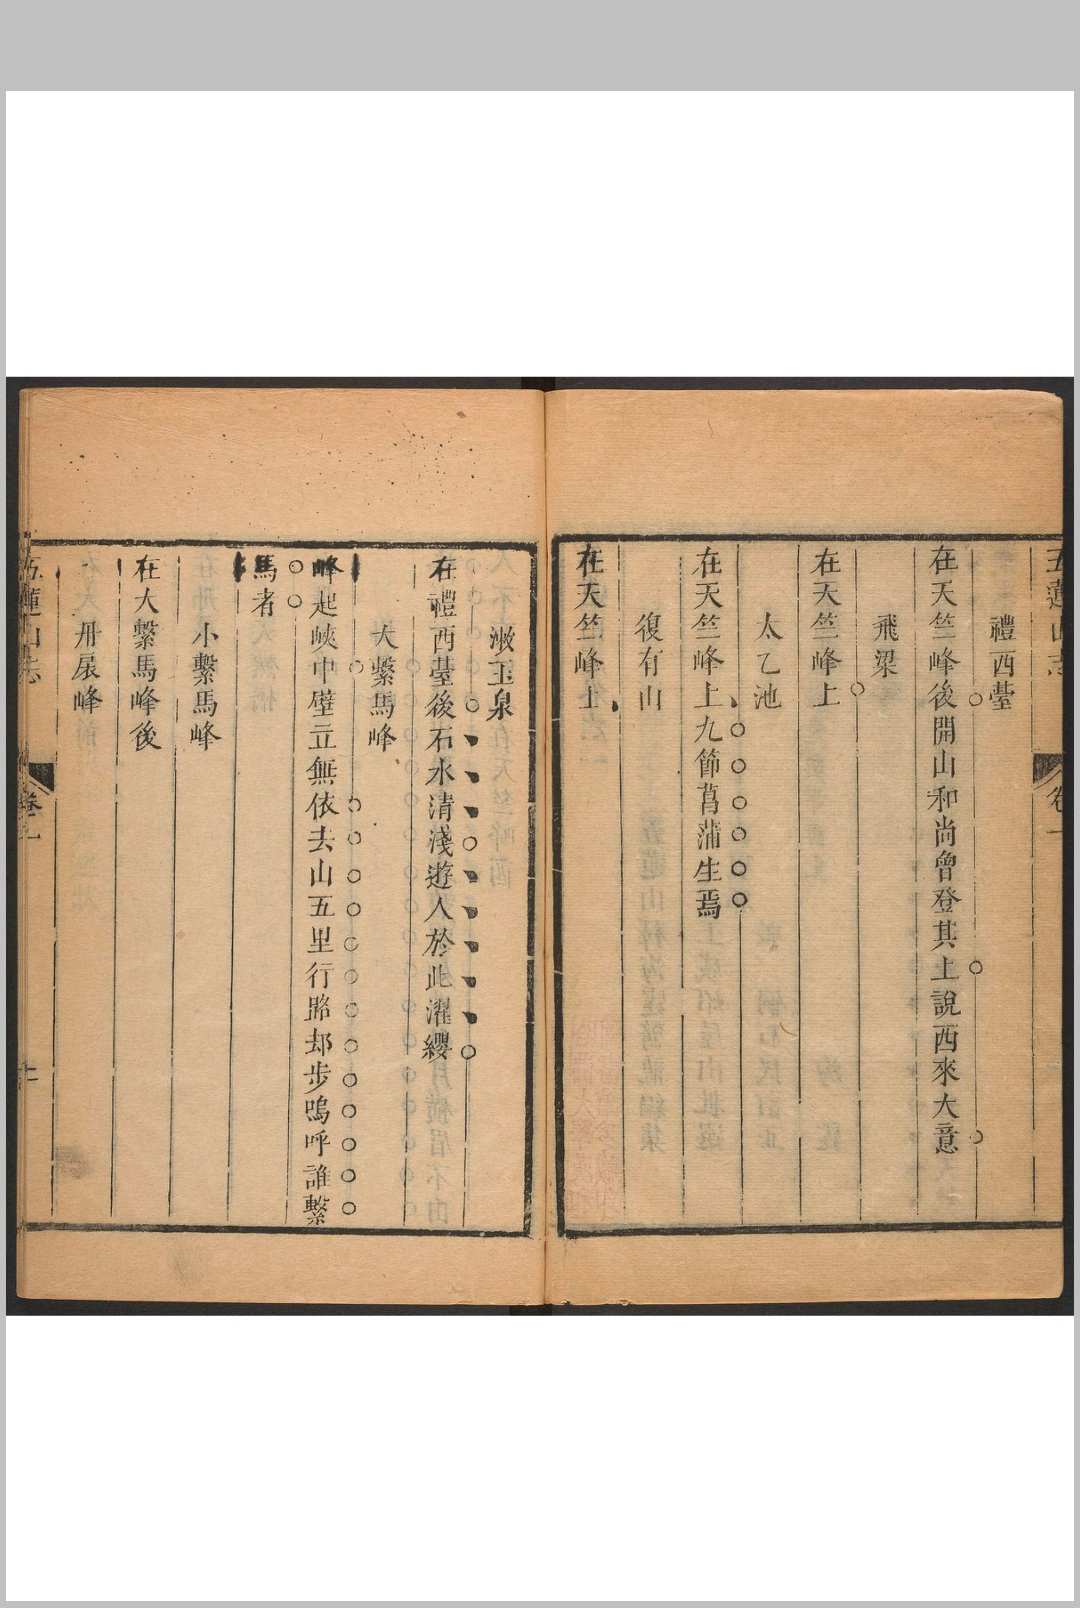 五蓮山志
卷一
禮西臺
在天竺峰後開山和尚曾登其上說西來大意
飛梁
在天竺峰上
太乙池
在天竺峰上九節菖蒲生焉
復有山
在天竺峰上
漱玉泉
在禮西臺後石水清淺遊人於此濯纓
大繫馬峰
峰起峽中壁立無依去山五里行路却步嗚呼誰繫
馬者
小繫馬峰
在大繫馬峰後
丹扆峰
五蓮山志
卷一